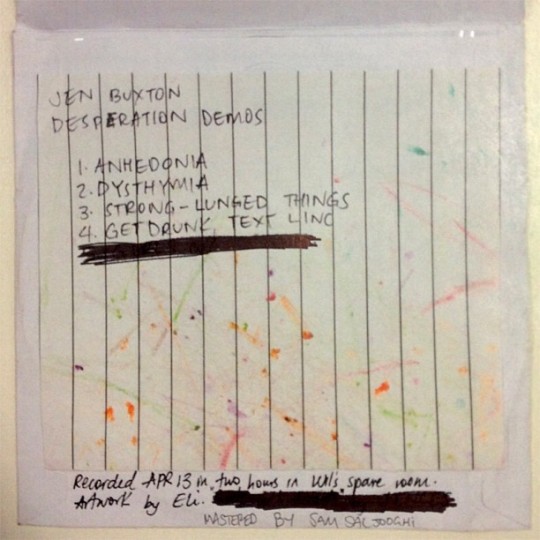 JEN BUXTON
DESPERATION DEMOS
1. ANHEDONIA
2. DYSTHYMIA
3. STRONG-LUNGED THINGS
4. GET DRUNK, TEXT LINC
Recorded APR 13 in two hours in spare room.
Artwork by Eli.
MASTERED BY SAM SALJOOGHI